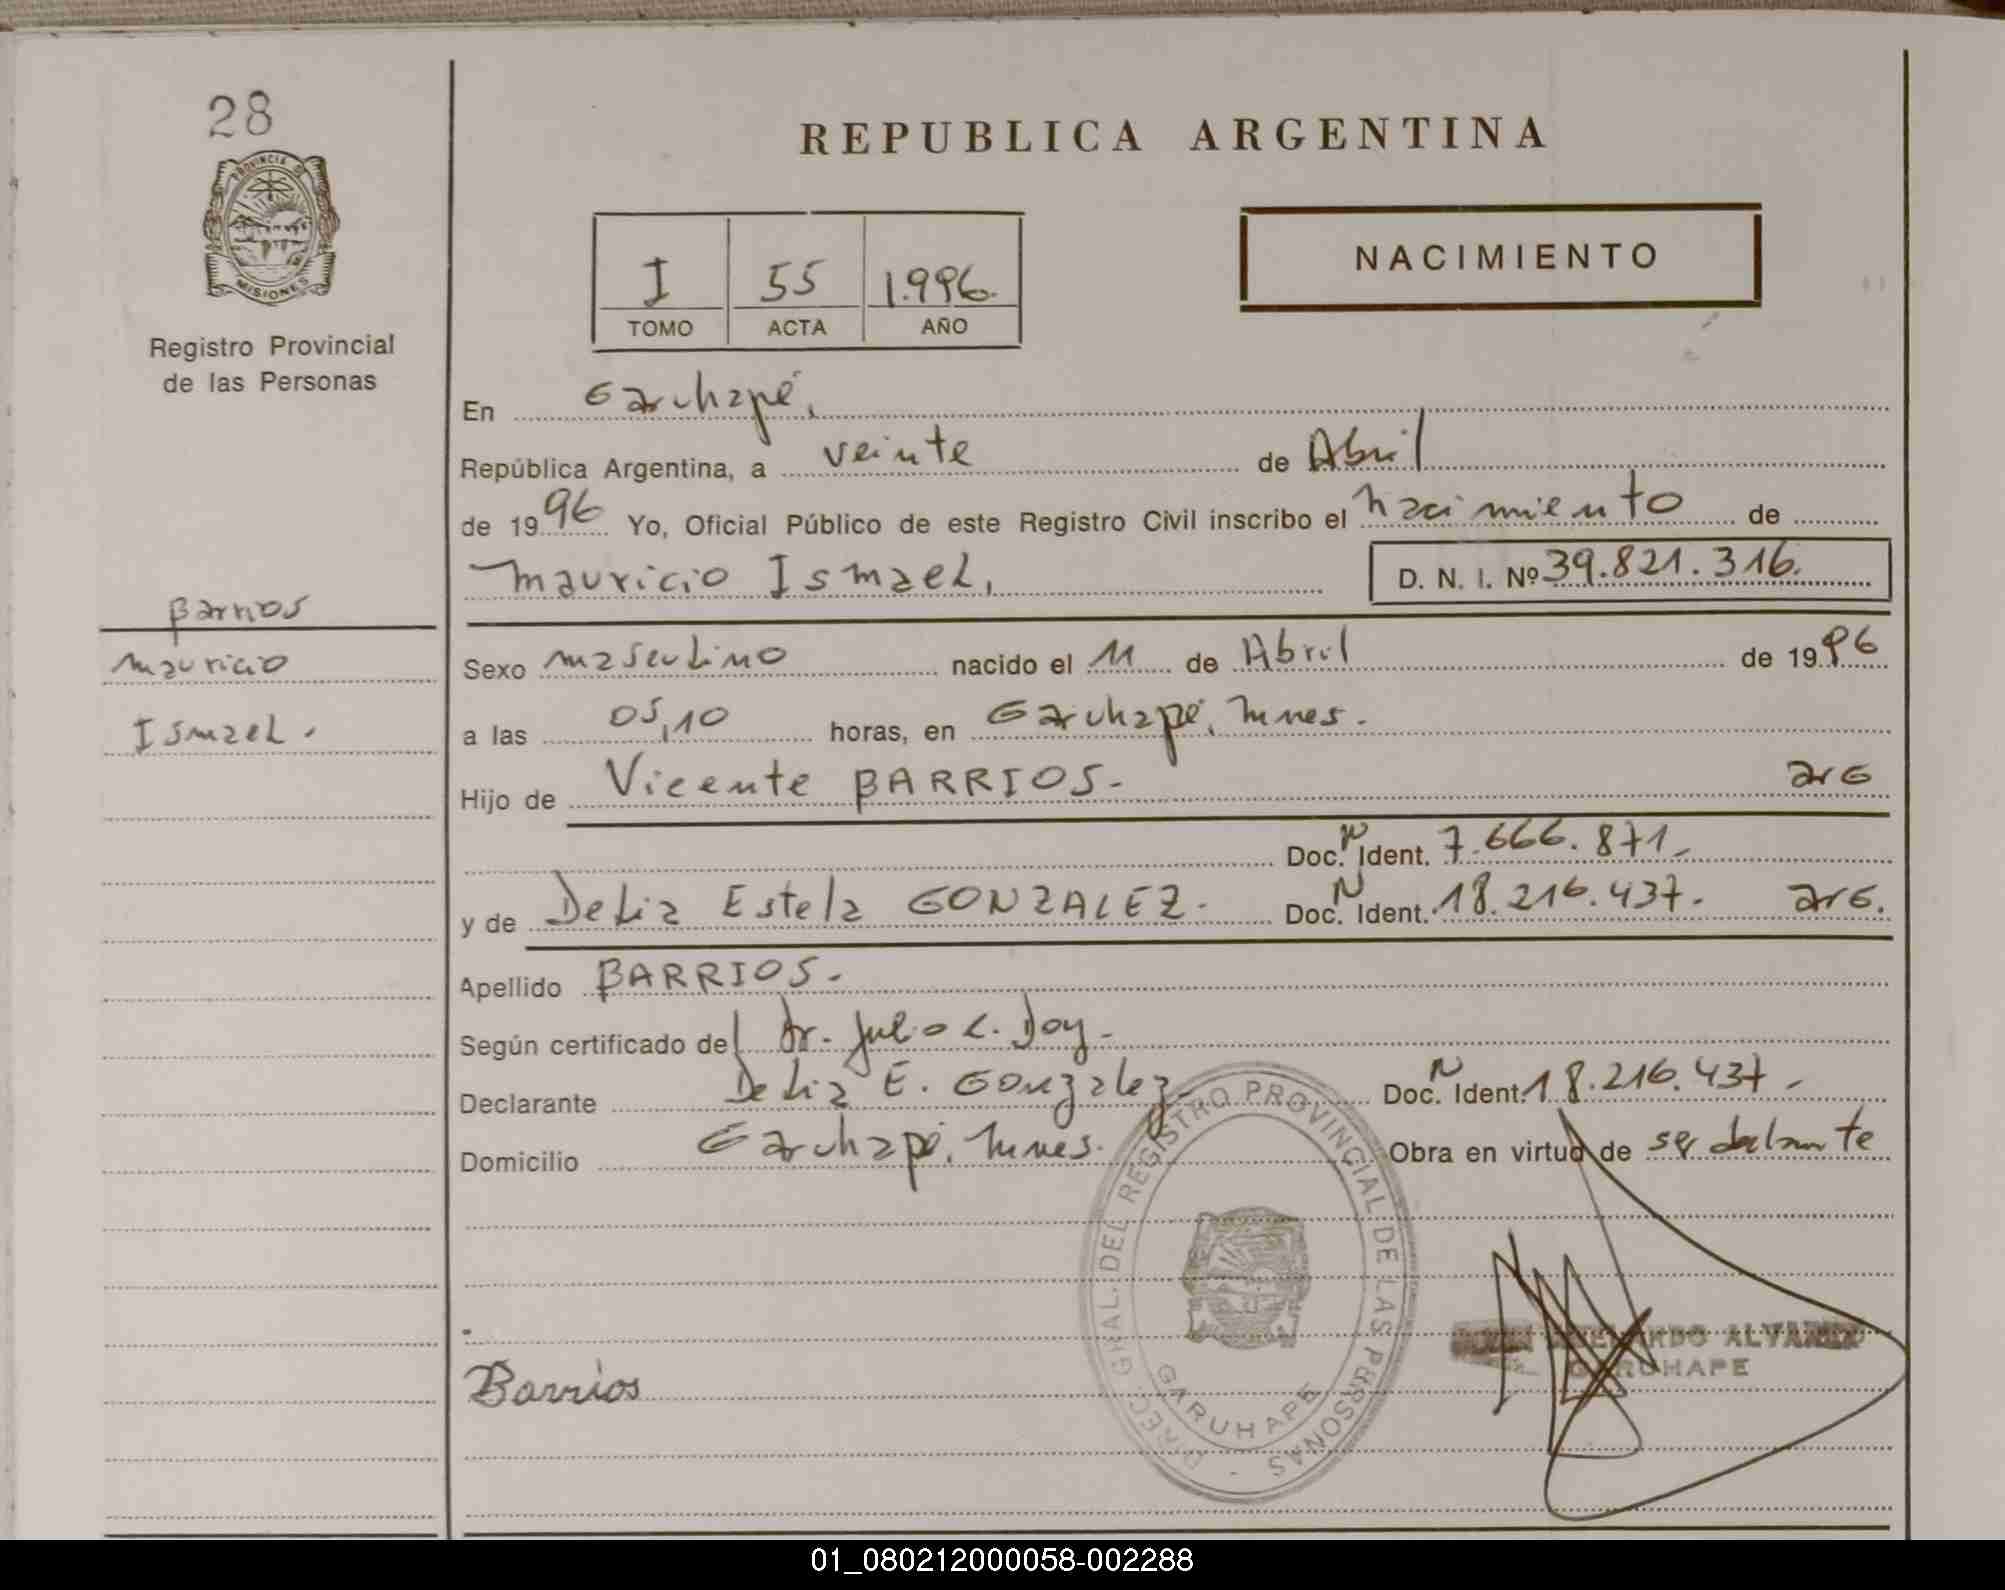 28
PROVINCIA DE
MISIONES
Registro Provincial
de las Personas
Barrios
Mauricio
Ismael.
REPUBLICA ARGENTINA
NACIMIENTO
I 55 1.996.
TOMO ACTA AÑO
En Garuhapé,
República Argentina, a veinte de Abril
de 1996 Yo, Oficial Público de este Registro Civil inscribo el nacimiento de
Mauricio Ismael, D. N. I. Nº 39.821.316.
Sexo masculino nacido el 11 de Abril de 1996
a las 05,10 horas, en Garuhapé, Mnes.
Hijo de Vicente BARRIOS.- arG
Doc. N Ident. 7.666.871.-
y de Delia Estela GONZALEZ.- Doc. N Ident. 18.216.437.- arG.
Apellido BARRIOS.-
Según certificado del Dr. Julio C. Doy.-
Declarante Delia E. Gonzalez.- Doc. N Ident. 18.216.437.-
Domicilio Garuhapé, Mnes. Obra en virtud de ser
DIREC. GRAL. DEL REGISTRO PROVINCIAL DE LAS PERSONAS -
GARUHAPE
ALVAREZ
GARUHAPE
Barrios
01_080212000058-002288